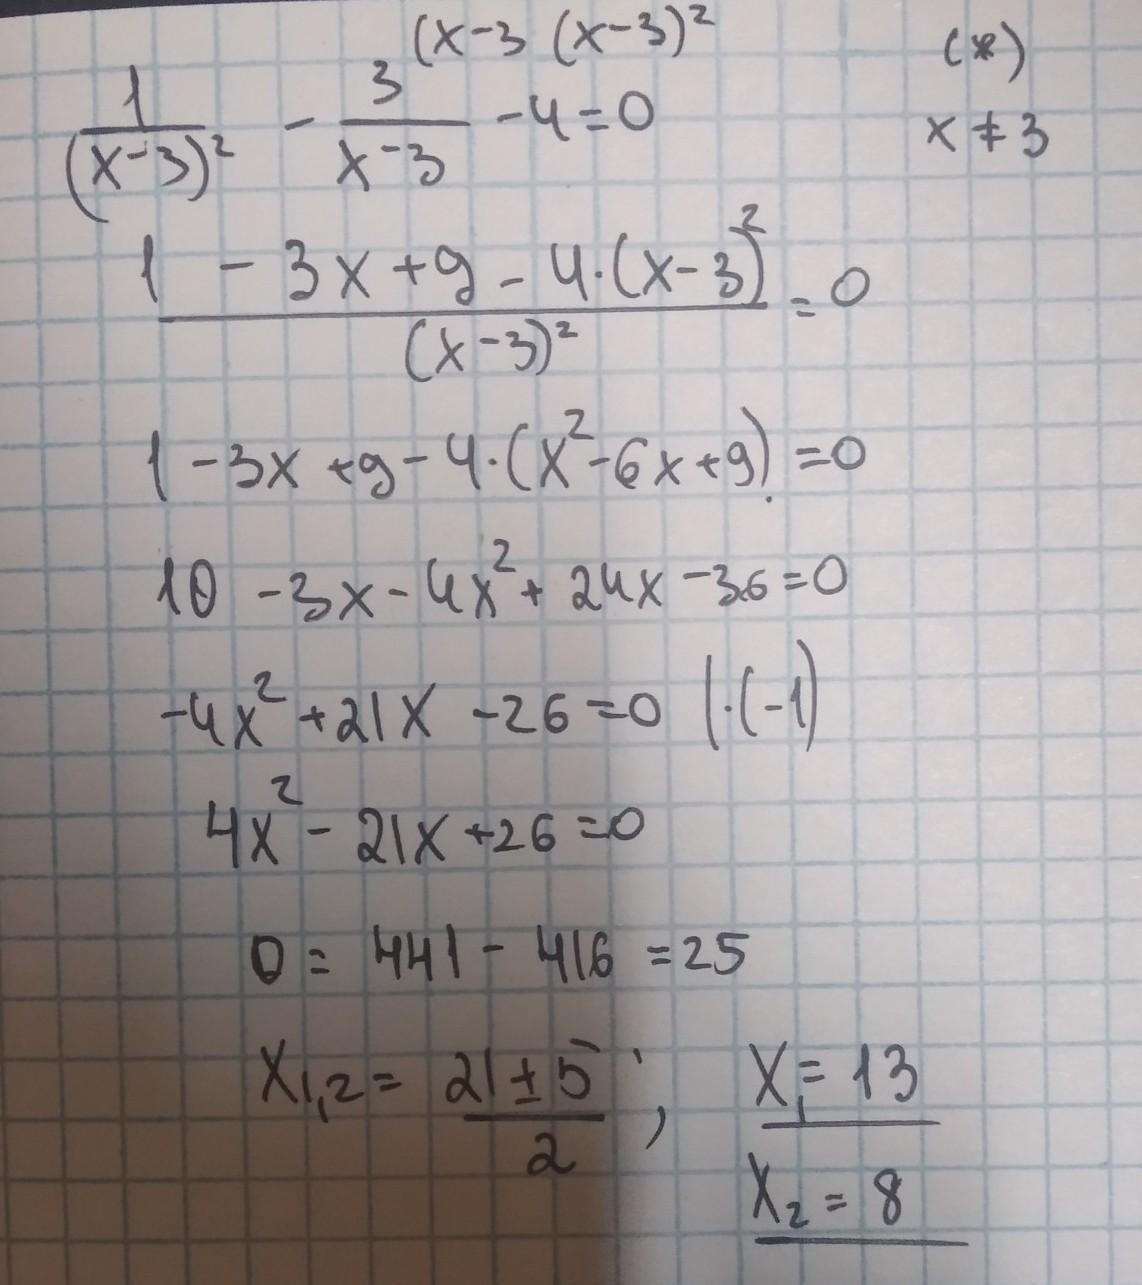 (x-3 (x-3)² (*)
1/(x-3)² - 3/(x-3) - 4 = 0 x ≠ 3
(1 - 3x + 9 - 4·(x-3)²)/(x-3)² = 0
1 - 3x + 9 - 4·(x² - 6x + 9) = 0
10 - 3x - 4x² + 24x - 36 = 0
-4x² + 21x - 26 = 0 |·(-1)
4x² - 21x + 26 = 0
D = 441 - 416 = 25
x₁,₂ = (21 ± 5)/2 ; x₁ = 13
x₂ = 8